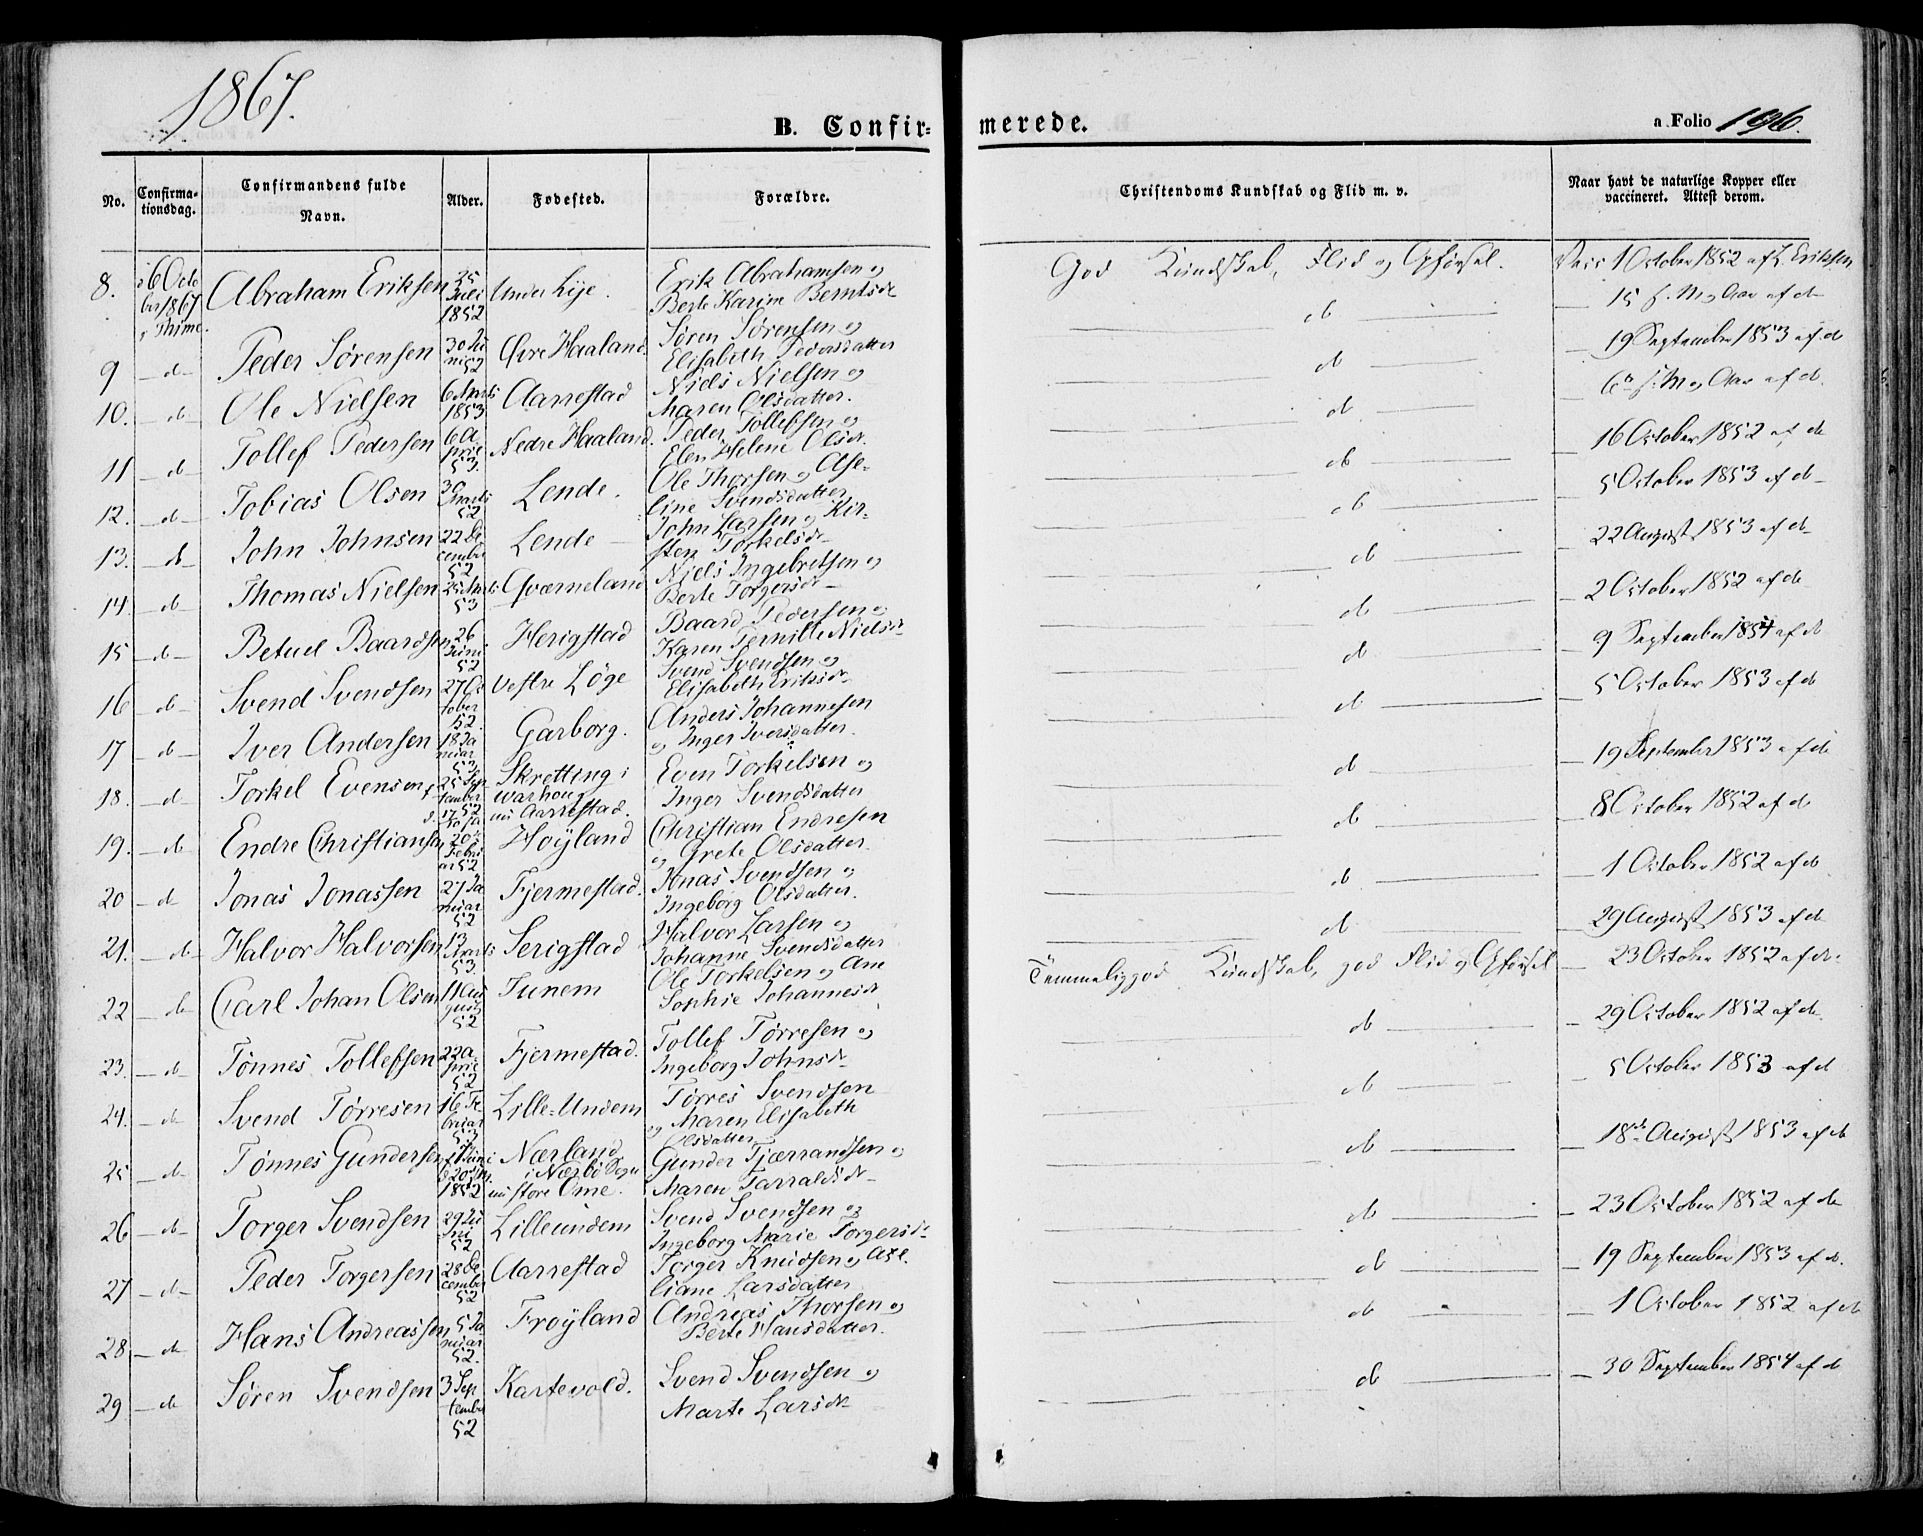 1867.
B. Confir=
merede.
a Folio 196.
No.
Confirma-
tionsdag.
Confirmandens fulde
Navn.
Alder.
Fødested.
Forældre.
Christendoms Kundskab og Flid m. v.
Naar havt de naturlige Kopper eller
vaccineret. Attest derom.
8. 6 Octo
ber 1867
Thime.
Abraham Eriksen
25
Juli
1852
Under Lye.
Erik Abrahamsen og
Berte Karine Berntsdr
God Kundskab, Flid og Opførsel.
Vacc 1 October 1852 af L Eriksen
9 - do - Peder Sørensen
30 Ju
ni 52
Øvre Haaland
Søren Sørensen og
Elisabeth Pedersdatter
do
15 s. M og Aar af do
10. - do Ole Nielsen
6 Marts
1853
Aarrestad
Niels Nielsen og
Maren Olsdatter.
do
19 September 1853 af do
11 - do - Tollef Pedersen
6 A
pril
53.
Nedre Haaland.
Peder Tollefsen og
Elen Helene Olsdr.
do
6te s. M og Aar af do.
12. - do - Tobias Olsen
30
Marts
52
Lende.
Ole Thorsen og Ase-
line Svendsdatter
do
16 October 1852 af do
13. - do - John Johnsen
22 De
cember
52
Lende
John Larsen og Kir-
sten Torkelsdr
do
5 October 1853 af do
14 - do - Thomas Nielsen
25 Marts
53
Qværneland
Niels Ingebretsen og
Berte Torgersdr
do
22 August 1853 af do
15 - do - Betuel Baardsen
26
Juni
52
Herigstad
Baard Pedersen og
Karen Pernille Nielsdr
do
2 October 1852 af do
16 - do - Svend Svendsen
27 Oc
tober
52.
Vestre Løge
Svend Svendsen og
Elisabeth Eriksdr
do
9 September 1854 af do
17 - do - Iver Andersen
18 Ja
nuar
53
Garborg.
Anders Johannesen
og Inger Iversdatter.
do
5 October 1853 af do
18. - do - Torkel Evensen
25 Sep
tember
52
Skretting i
Warhoug
nu Aarrestad.
Even Torkelsen og
Inger Svendsdatter
do
19 September 1853 af do
19. - do Endre Christiansen
20
Febru
ar 52
Høyland
Christian Endresen
og Grete Olsdatter.
do
8 October 1852 af do
20 - do Jonas Jonassen
27 Ja
nuar
52
Fjermestad.
Jonas Svendsen og
Ingeborg Olsdatter.
do
1 October 1852 af do
21. - do Halvor Halvorsen
13
Marts
53.
Serigstad
Halvor Larsen og
Johanne Svendsdatter
do
29 August 1853 af do
22 - do Carl Johan Olsen
11 Au
gust
52
Tunem
Ole Torkelsen og Ane
Sophie Johannesdr
Temmelig god Kundskab, god Flid og Opførsel
23 October 1852 af do.
23. - do Tønnes Tollefsen
22 A
pril
52
Fjermestad.
Tollef Tørresen og
Ingeborg Johnsdr
do
29 October 1852 af do.
24. - do Svend Tørresen
16 Fe
bruar
53
Lille-Undem
Tørres Svendsen
og Maren Elisabeth
Olsdatter
do
5 October 1853 af do
25 - do Tønnes Gundersen
1852
Nærland
i Nærbø Sogn
nu store Ome.
Gunder Tjærrandsen og
Maren Tarraldsdr
do
18de August 1853 af do
26 - do - Torger Svendsen
29 Ju
ni
52
Lilleundem
Svend Svendsen og
Ingeborg Marie Torgersdr
do
23 October 1852 af do
27 - do - Peder Torgersen
28 De
cember
52
Aarrestad
Torger Knudsen og Axe
liane Larsdatter
do
19 September 1853 af do.
28 - do Hans Andreassen
5 Ja
nuar
52.
Frøyland
Andreas Thorsen og
Berte Hansdatter.
do
1 October 1852 af do
29 - do Søren Svendsen
3 Sep
tember
52
Kartevold.
Svend Svendsen og
Marte Larsdr
do
30 September 1854 af do